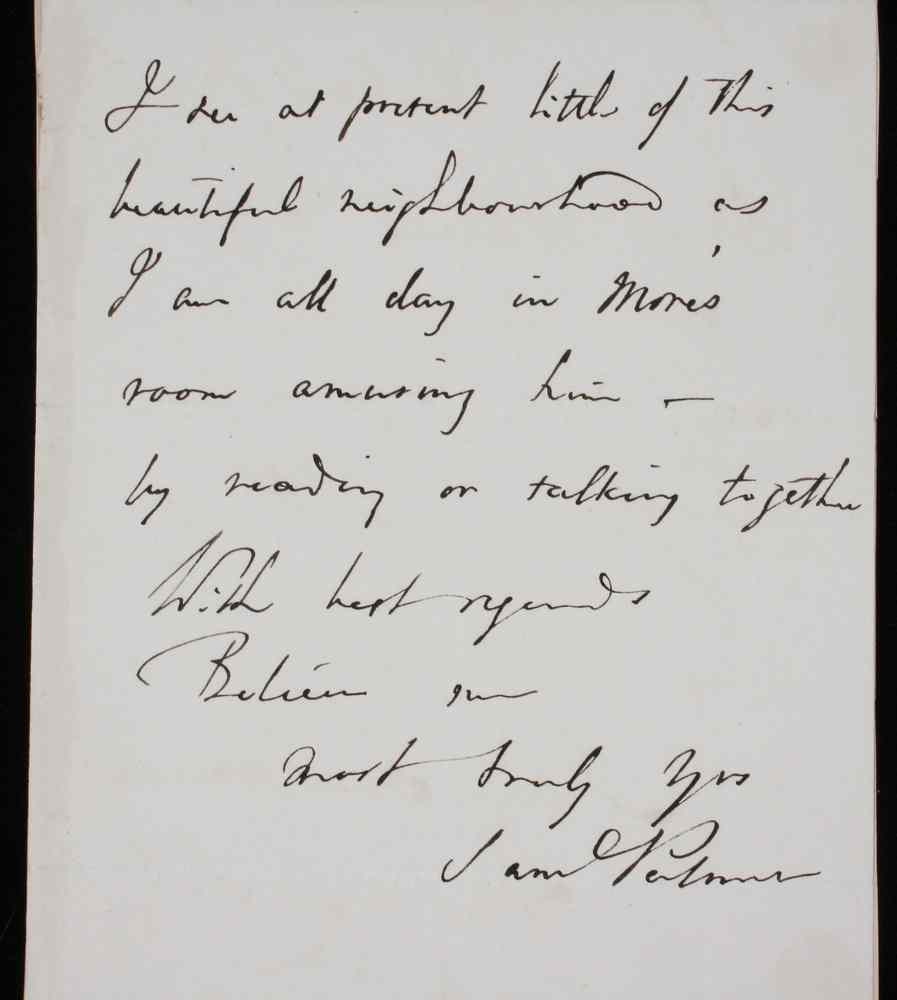 I see at present little of this
beautiful neighbourhood as
I am all day in More's
room amusing him —
by reading or talking together
With best regards
Believe me
most truly yrs
Saml Palmer